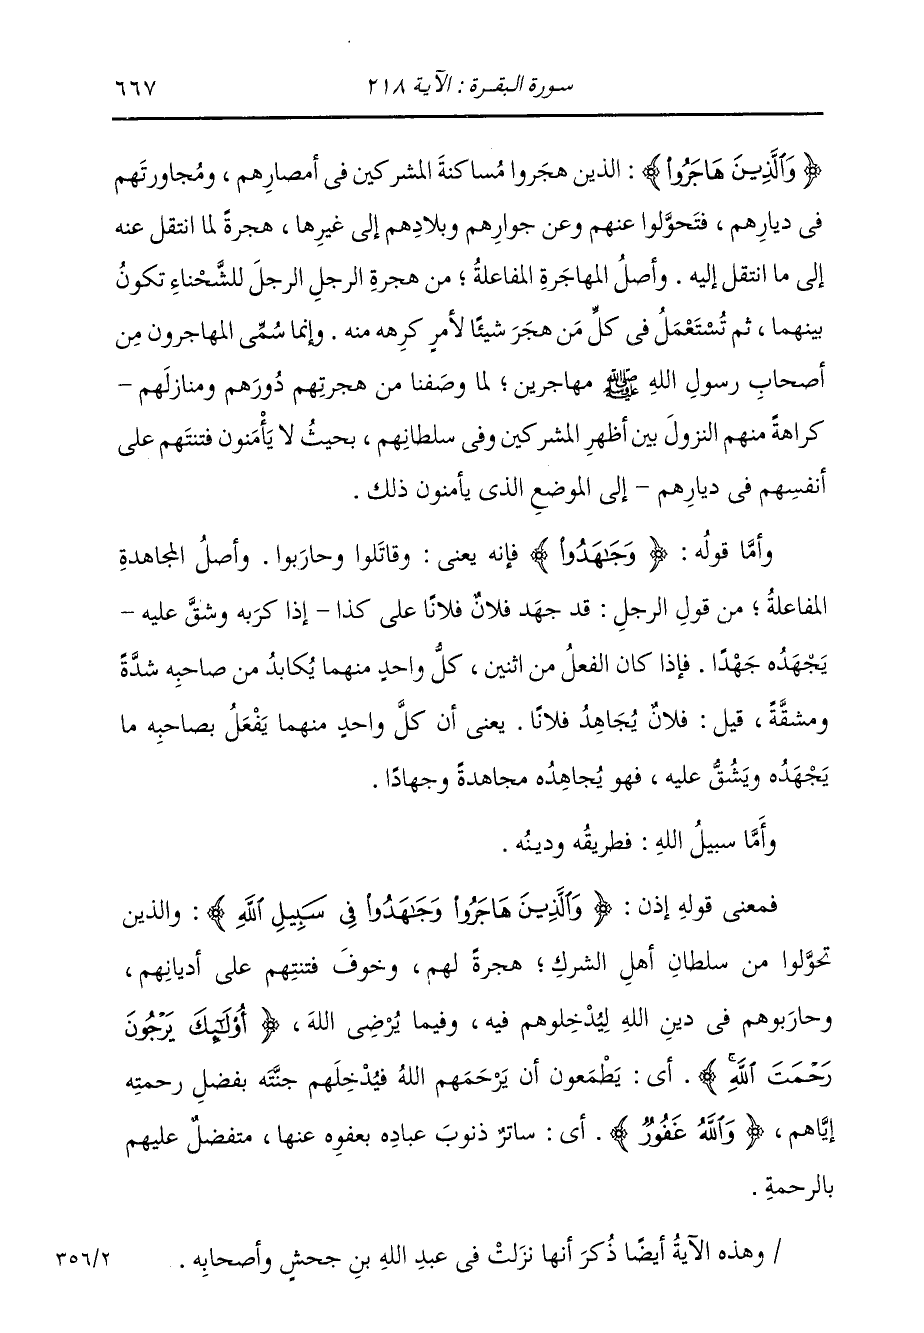 سورة البقرة : الآية ٢١٨
٦٦٧
﴿ وَٱلَّذِينَ هَاجَرُوا۟ ﴾ : الذين هجَروا مُساكنةَ المشركين فى أمصارِهم ، ومُجاورتَهم
فى ديارِهم ، فتَحوَّلوا عنهم وعن جوارِهم وبلادِهم إلى غيرِها ، هجرةً لما انتقل عنه
إلى ما انتقل إليه . وأصلُ المهاجَرةِ المفاعلةُ ؛ من هجرةِ الرجلِ الرجلَ للشَّحْناءِ تكونُ
بينهما ، ثم تُسْتَعْمَلُ فى كلِّ مَن هجَرَ شيئًا لأمرٍ كرِهه منه . وإنما سُمِّى المهاجرون مِن
أصحابِ رسولِ اللهِ ﷺ مهاجرين ؛ لما وصَفنا من هجرتِهم دُورَهم ومنازلَهم –
كراهةً منهم النزولَ بين أظهرِ المشركين وفى سلطانِهم ، بحيثُ لا يَأْمَنون فتنتَهم على
أنفسِهم فى ديارِهم – إلى الموضعِ الذى يأمنون ذلك .
وأمَّا قولُه : ﴿ وَجَٰهَدُوا۟ ﴾ فإنه يعنى : وقاتَلوا وحارَبوا . وأصلُ المجاهدةِ
المفاعلةُ ؛ من قولِ الرجلِ : قد جهَد فلانٌ فلانًا على كذا – إذا كرَبه وشقَّ عليه –
يَجْهَدُه جَهْدًا . فإذا كان الفعلُ من اثنين ، كلُّ واحدٍ منهما يُكابدُ من صاحبِه شدَّةً
ومشقَّةً ، قيل : فلانٌ يُجَاهِدُ فلانًا . يعنى أن كلَّ واحدٍ منهما يَفْعَلُ بصاحبِه ما
يَجْهَدُه ويَشُقُّ عليه ، فهو يُجاهِدُه مجاهدةً وجهادًا .
وأَمَّا سبيلُ اللهِ : فطريقُه ودينُه .
فمعنى قولِه إذن : ﴿ وَٱلَّذِينَ هَاجَرُوا۟ وَجَٰهَدُوا۟ فِى سَبِيلِ ٱللَّهِ ﴾ : والذين
تحوَّلوا من سلطانِ أهلِ الشركِ ؛ هجرةً لهم ، وخوفَ فتنتِهم على أديانِهم ،
وحارَبوهم فى دينِ اللهِ لِيُدْخِلوهم فيه ، وفيما يُرْضِى اللهَ ، ﴿ أُو۟لَٰٓئِكَ يَرْجُونَ
رَحْمَتَ ٱللَّهِۚ ﴾ . أى : يَطْمَعون أن يَرْحَمَهم اللهُ فيُدْخِلَهم جنَّتَه بفضلِ رحمتِه
إيَّاهم ، ﴿ وَٱللَّهُ غَفُورٌ ﴾ . أى : ساترٌ ذنوبَ عبادِه بعفوِه عنها ، متفضلٌ عليهم
بالرحمةِ .
/ وهذه الآيةُ أيضًا ذُكرَ أنها نزَلتْ فى عبدِ اللهِ بنِ جحشٍ وأصحابِه .
٣٥٦/٢